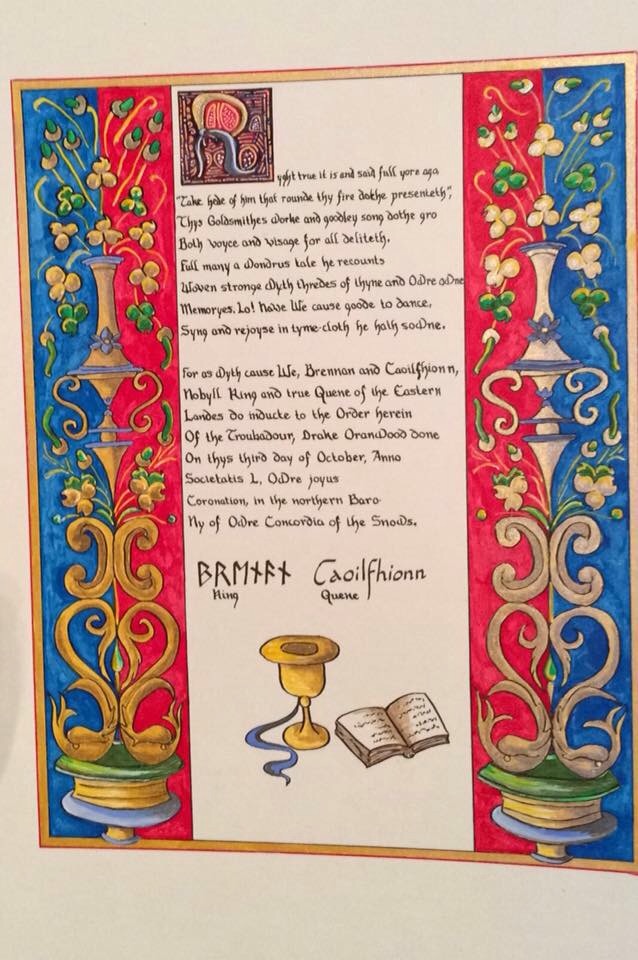 Ryght true it is and said full yore ago
"Take hede of him that rounde thy fire dothe presenteth",
Thys Goldsmithes worke and goodley song dothe gro
Both voyce and visage for all deliteth.
Full many a wondrus tale he recounts
Woven stronge wyth thredes of thyne and owre owne
Memoryes. Lo! have We cause goode to dance,
Syng and rejoyse in tyme-cloth he hath sowne.
For as wyth cause We, Brennan and Caoilfhionn,
Nobyll King and true Quene of the Eastern
Landes do inducte to the Order herein
Of the Troubadour, Drake Oranwood done
On thys third day of October, Anno
Societatis L, owre joyus
Coronation, in the northern Baro-
Ny of owre Concordia of the Snows.
BRENAN Caoilfhionn
King Quene